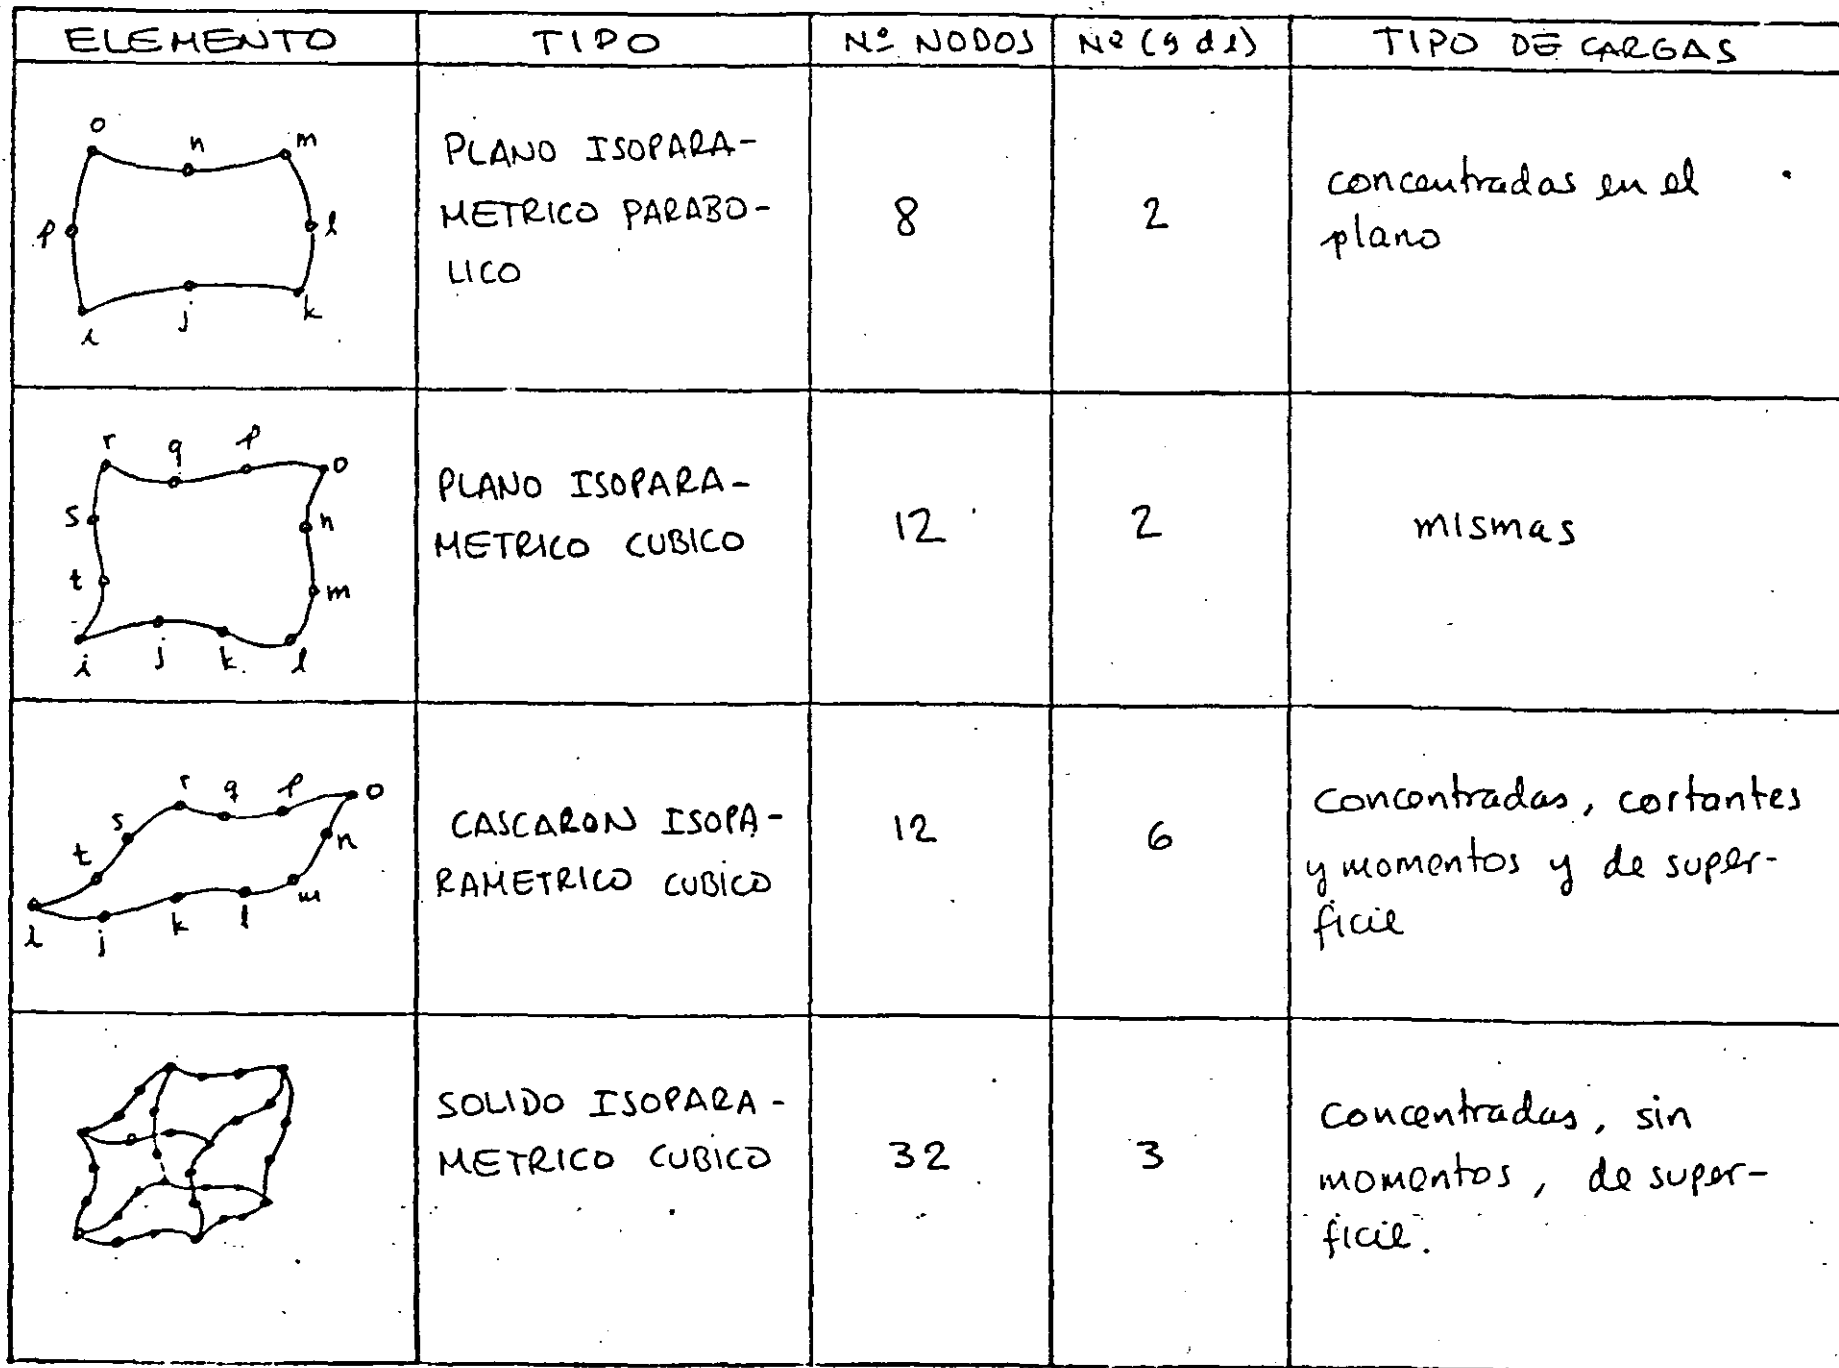 ELEMENTO TIPO Nº NODOS Nº (g d l) TIPO DE CARGAS
o n m
p l
i j k
PLANO ISOPARA-
METRICO PARABO-
LICO
8
2
concentradas en el
plano
r q p o
s n
t m
i j k l
PLANO ISOPARA-
METRICO CUBICO
12
2
mismas
r q p o
s n
t m
i j k l
CASCARON ISOPA-
RAMETRICO CUBICO
12
6
concentradas, cortantes
y momentos y de super-
ficie
SOLIDO ISOPARA-
METRICO CUBICO
32
3
concentradas, sin
momentos, de super-
ficie.